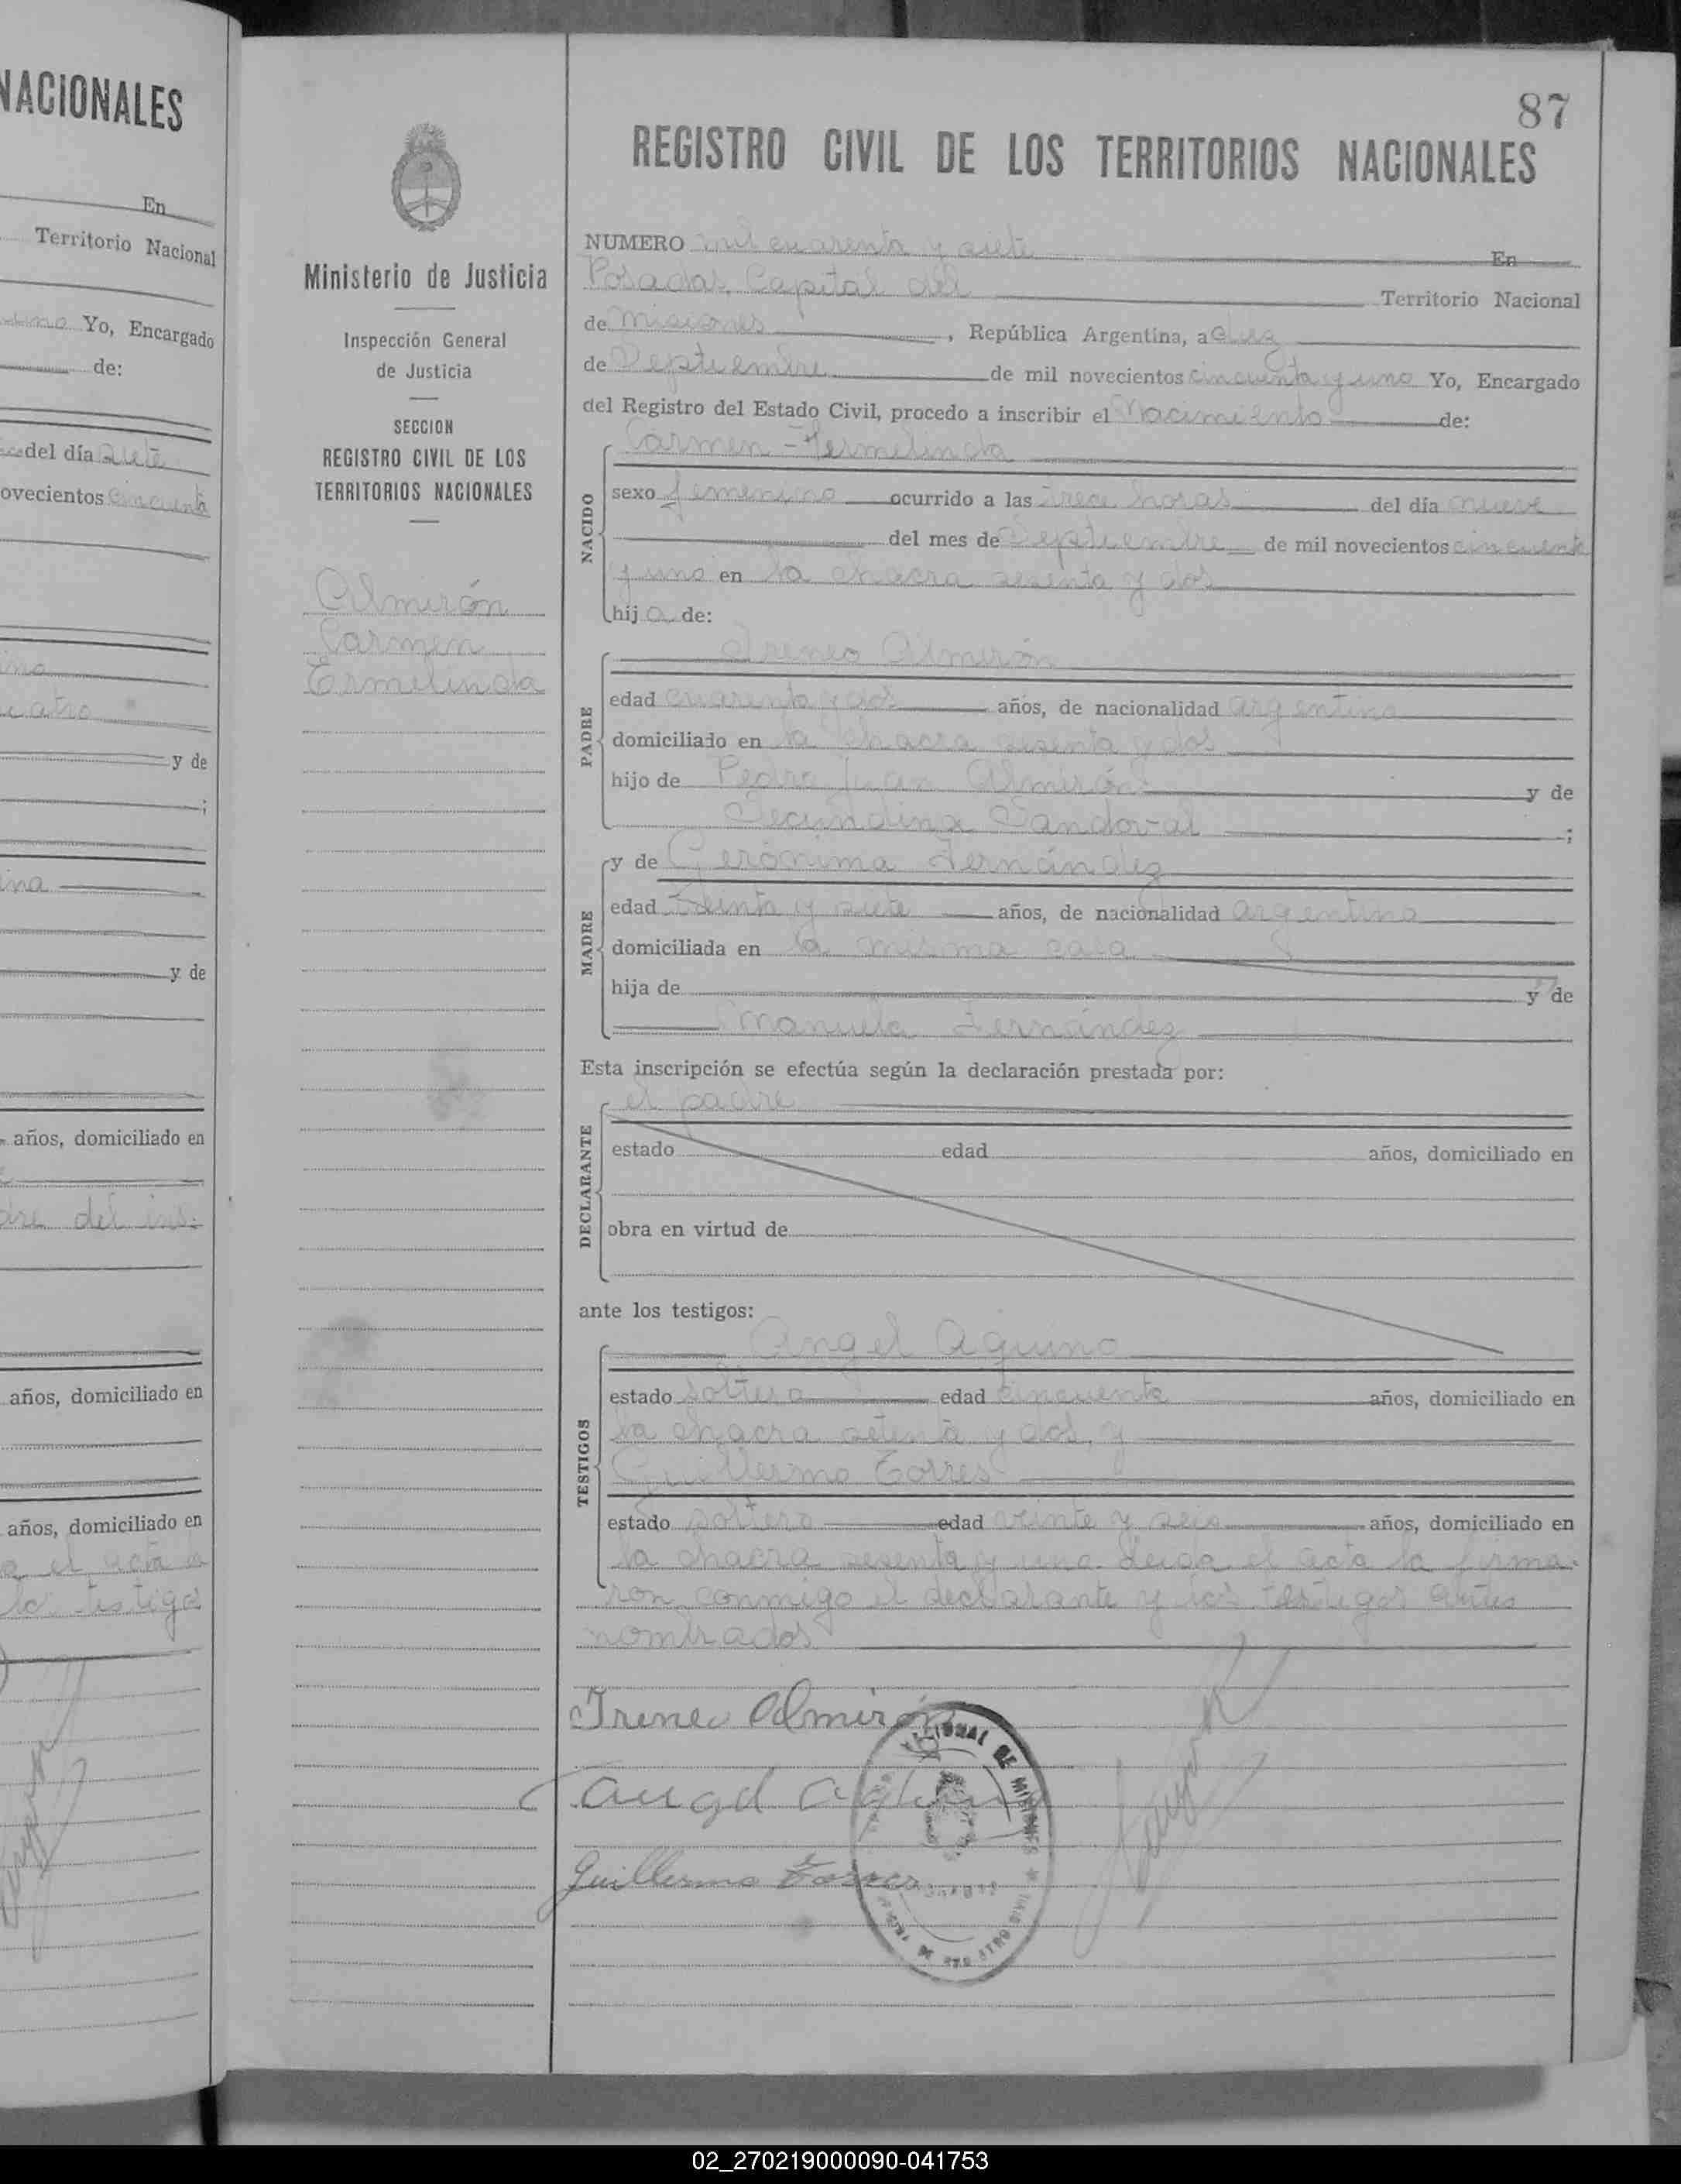 NACIONALES
En
Territorio Nacional
uno Yo, Encargado
de:
del día siete
ovecientos cincuenta
y de
;
ina
y de
años, domiciliado en
dre del ins-
años, domiciliado en
años, domiciliado en
a el acta la
testigos
87
Ministerio de Justicia
Inspección General
de Justicia
SECCION
REGISTRO CIVIL DE LOS
TERRITORIOS NACIONALES
Almirón
Carmen
Ermelinda
REGISTRO CIVIL DE LOS TERRITORIOS NACIONALES
NUMERO mil cuarenta y siete En
Posadas, Capital del Territorio Nacional
de Misiones, República Argentina, a diez
de Septiembre de mil novecientos cincuenta y uno Yo, Encargado
del Registro del Estado Civil, procedo a inscribir el Nacimiento de:
Carmen Hermelinda
NACIDO
sexo femenino ocurrido a las trece horas del día nueve
del mes de Septiembre de mil novecientos cincuenta
y uno en la chacra sesenta y dos
hija de:
PADRE
Ireneo Almirón
edad cuarenta y dos años, de nacionalidad argentina
domiciliado en la chacra sesenta y dos
hijo de Pedro Juan Almirón y de
Secundina Sandoval ;
MADRE
y de Gerónima Fernández
edad treinta y siete años, de nacionalidad argentina
domiciliada en la misma casa
hija de y de
Manuela Fernández
Esta inscripción se efectúa según la declaración prestada por:
DECLARANTE
el padre
estado edad años, domiciliado en
obra en virtud de
ante los testigos:
TESTIGOS
Angel Aquino
estado soltero edad cincuenta años, domiciliado en
la chacra setenta y dos, y
Guillermo Torres
estado soltero edad veinte y seis años, domiciliado en
la chacra sesenta y uno. Leída el acta la firma-
ron conmigo el declarante y los testigos antes
nombrados
Ireneo Almirón
Angel Aquino
Guillermo Torres
NACIONAL DE MISIONES
02_270219000090-041753